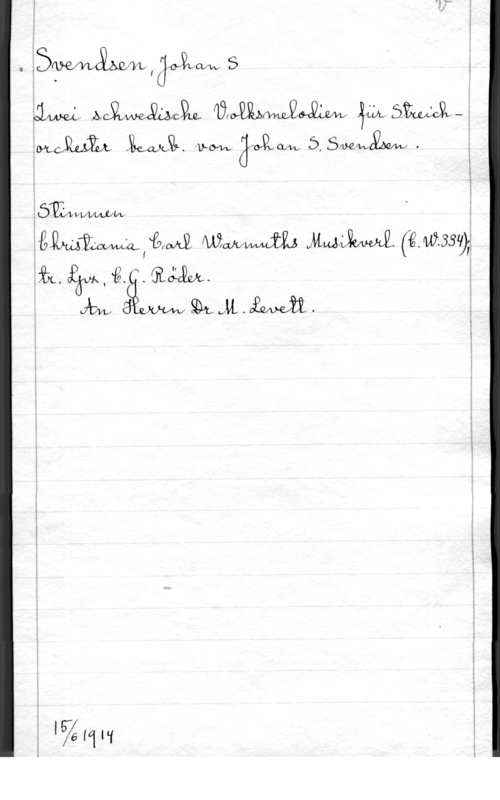 Svendsen, Johan S
Zwei schwedische Volksmelodien für Streich-
orchester bearb. von Johan S. Svendsen.
Stimmen
Christiania, Carl Warmuths Musikverl (C.W.334),
tr. Lpz, C.G. Röder.
An Herrn Dr M. Levett.
15/6 1914